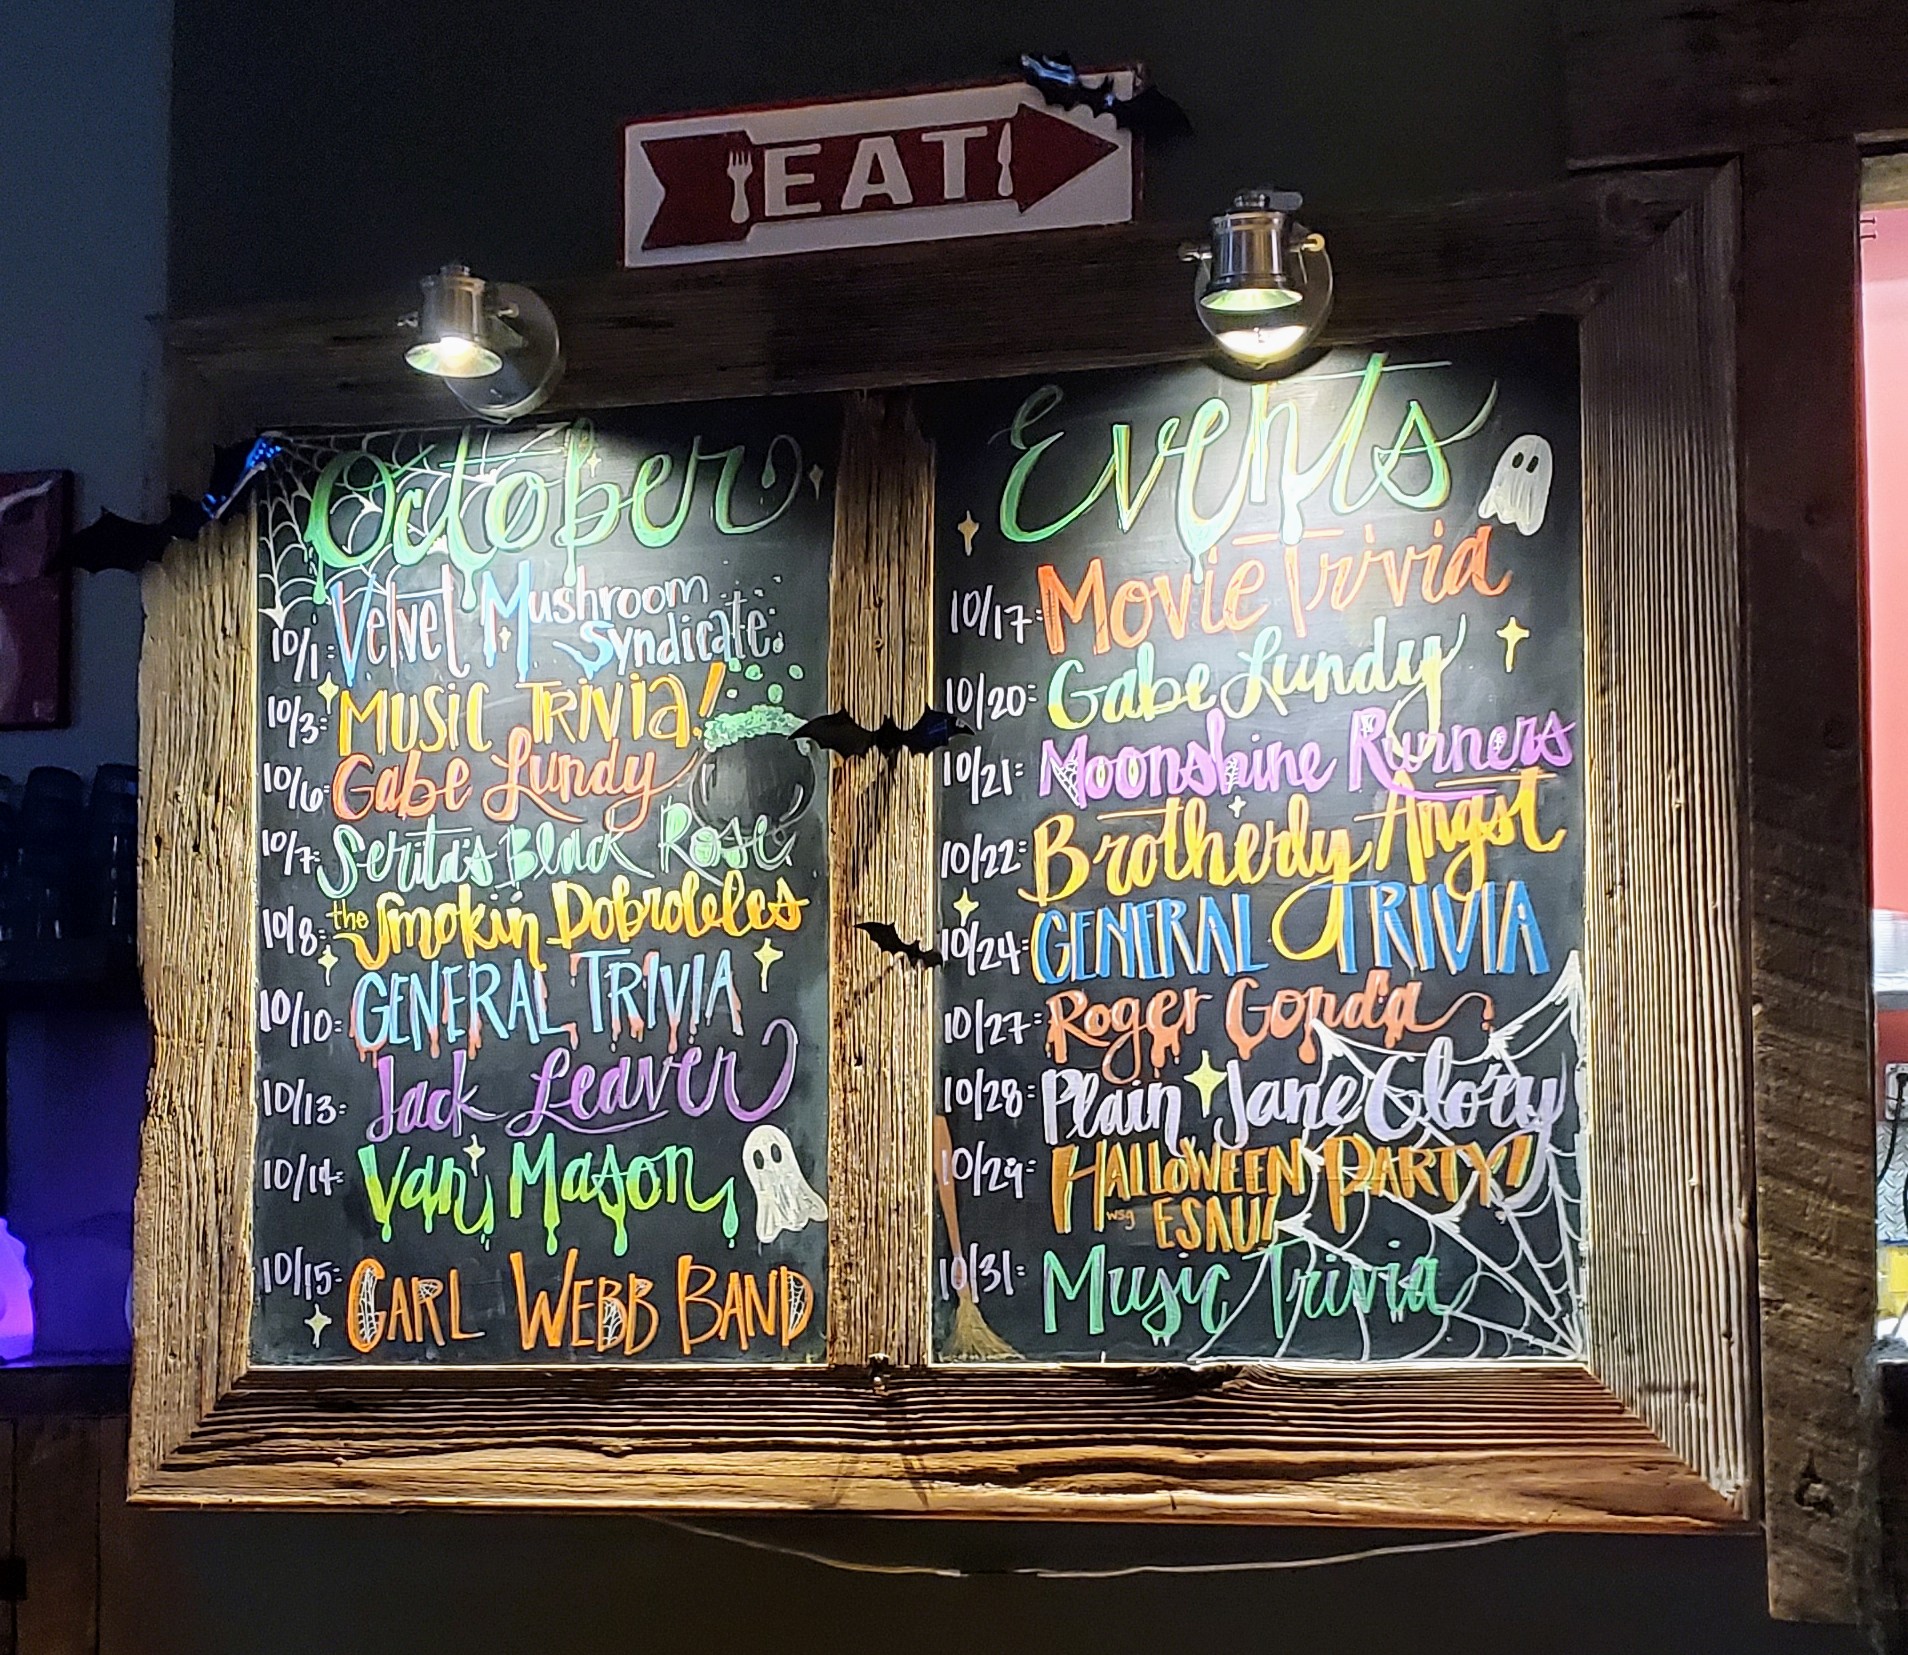 EAT
October Events
10/1: Velvet Mushroom Syndicate
10/3: MUSIC TRIVIA!
10/6: Gabe Lundy
10/7: Serita's Black Rose
10/8: the Smokin Dobroleles
10/10: GENERAL TRIVIA
10/13: Jack Leaver
10/14: Van Mason
10/15: CARL WEBB BAND
10/17: Movie Trivia
10/20: Gabe Lundy
10/21: Moonshine Runners
10/22: Brotherly Angst
10/24: GENERAL TRIVIA
10/27: Roger Gorda
10/28: Plain Jane Glory
10/29: HALLOWEEN PARTY!
wsg ESNU!
10/31: Music Trivia